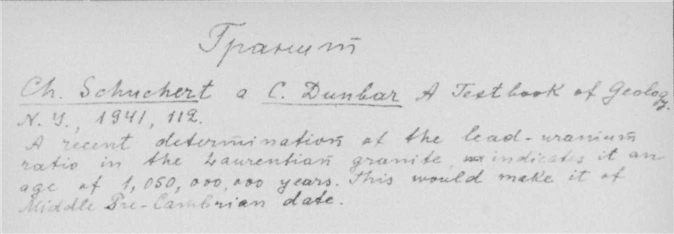 Гранит
Ch. Schuchert a C. Dunbar A Textbook of Geology.
N. Y., 1941, 112.
A recent determination of the lead-uranium
ratio in the Laurentian granite, indicates it an
age of 1,050,000,000 years. This would make it of
Middle Pre-Cambrian date.